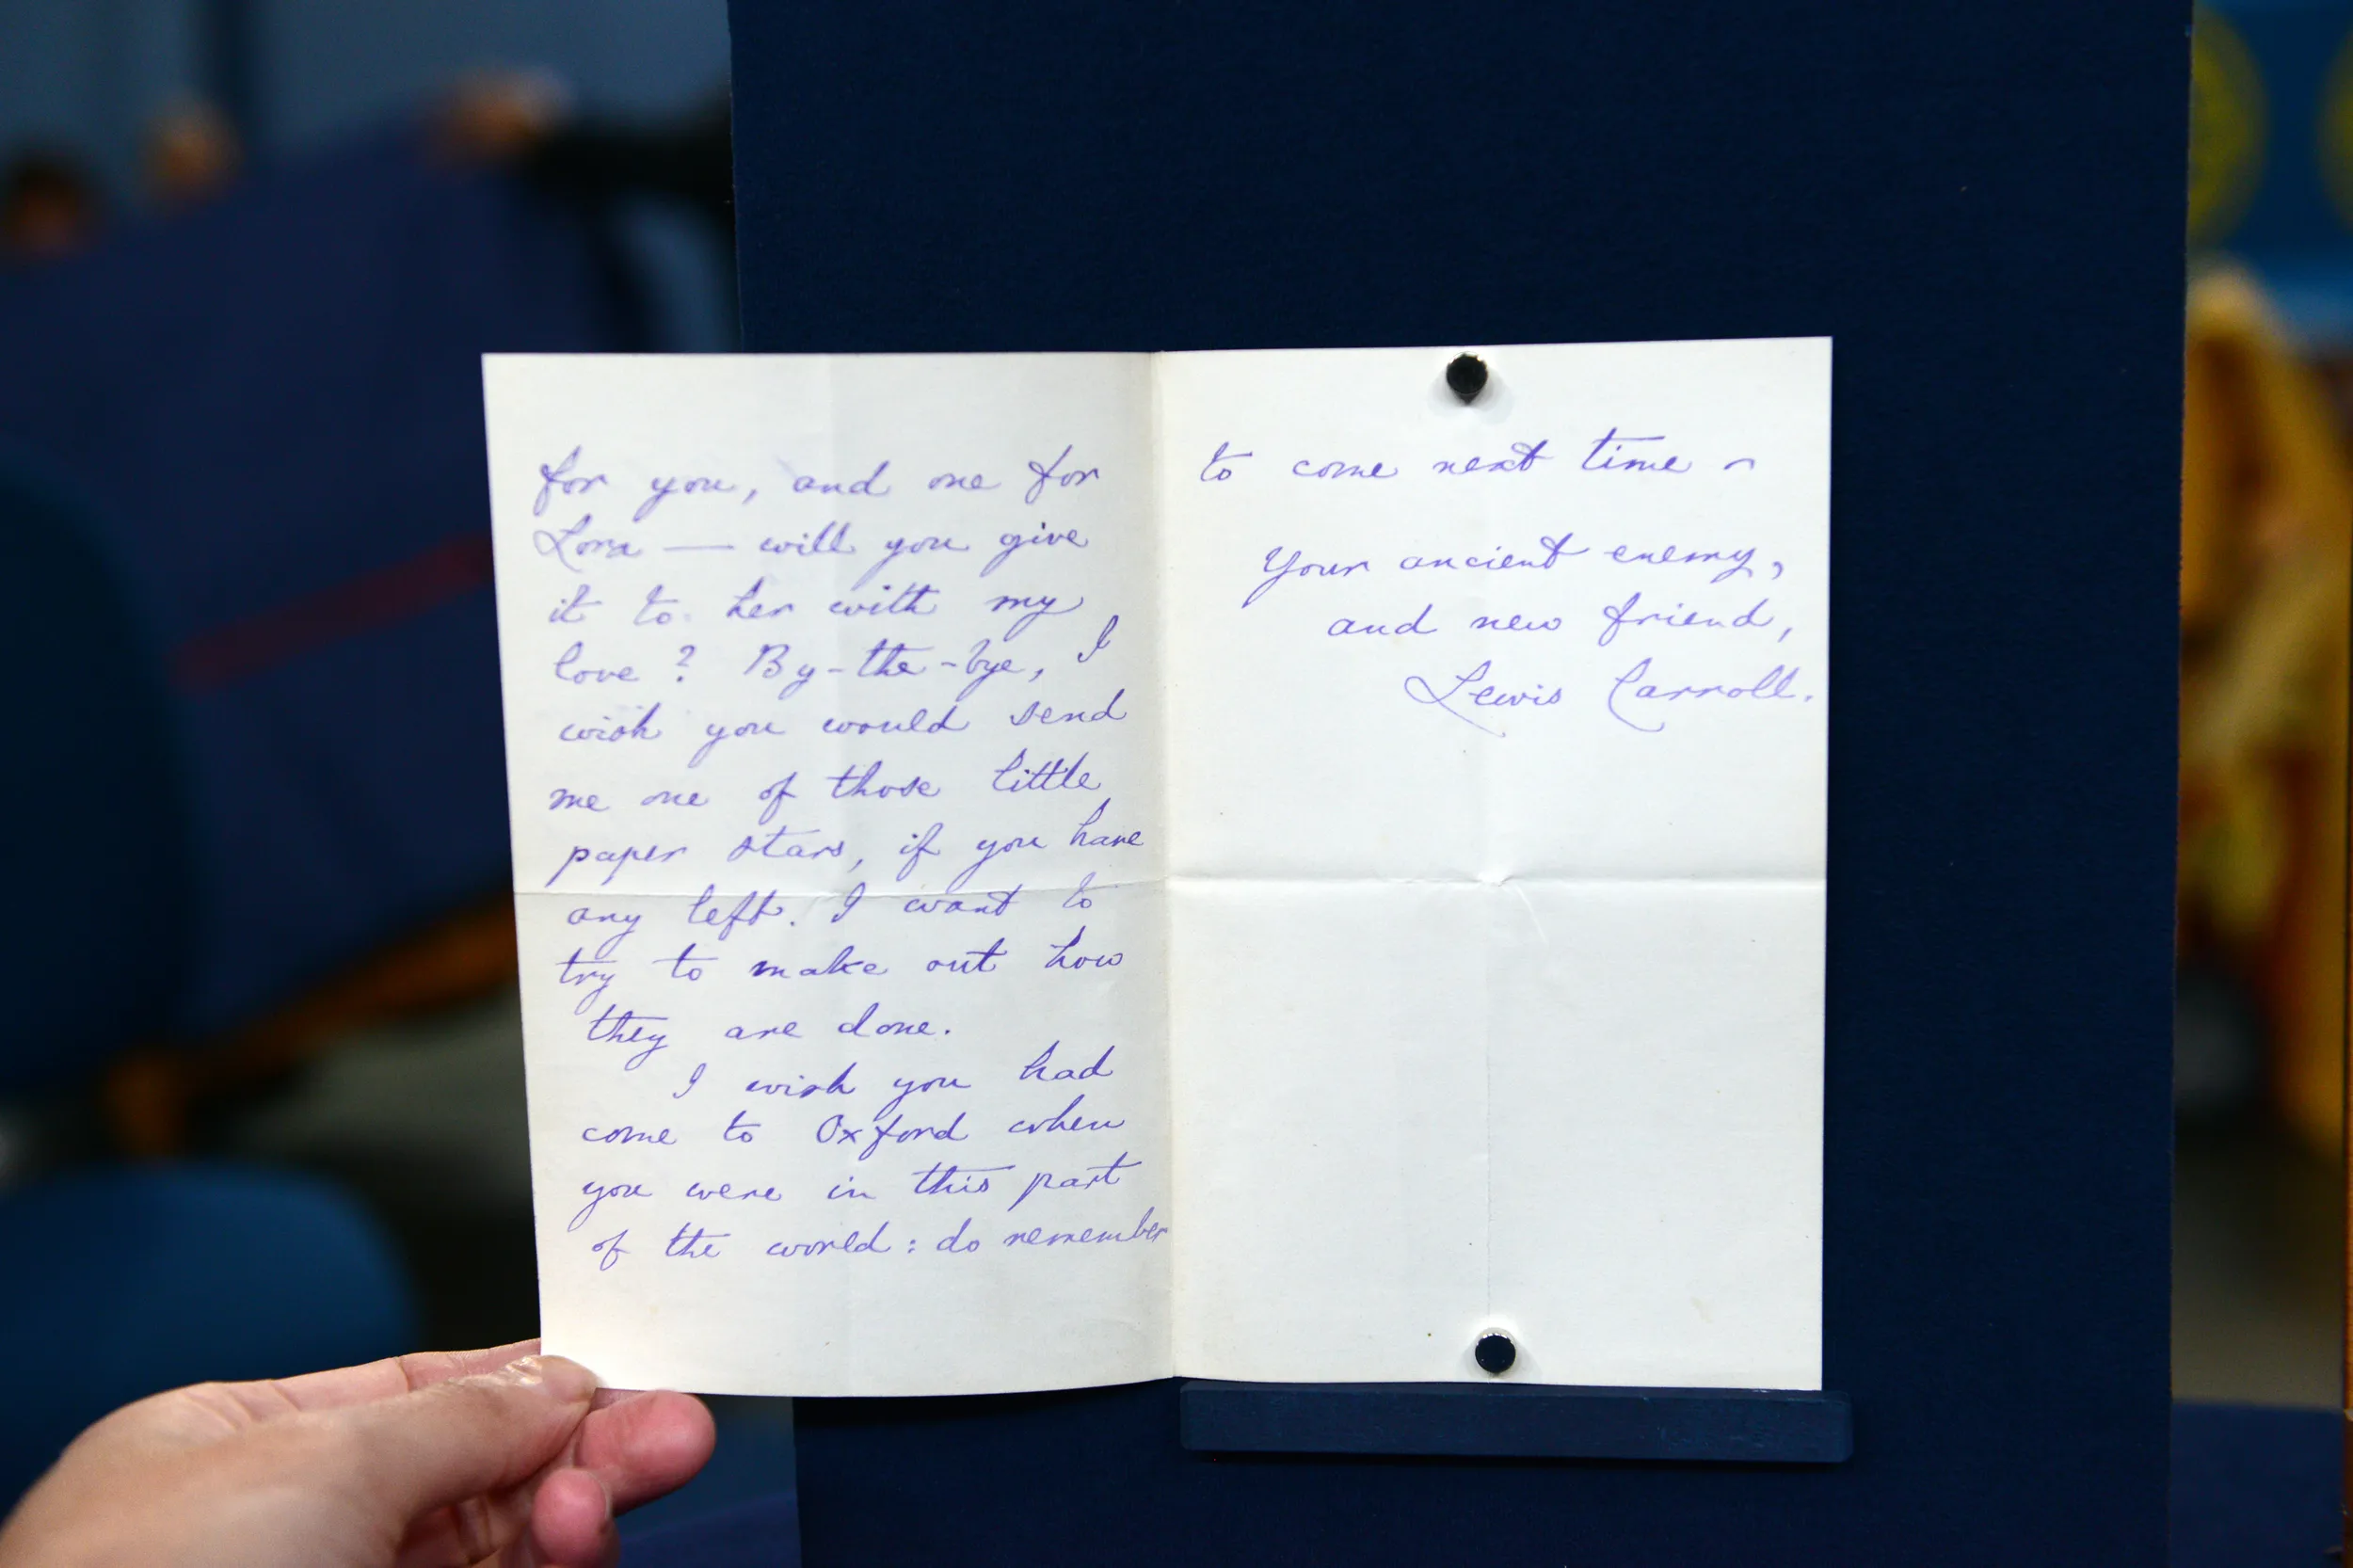 for you, and one for
Lora — will you give
it to her with my
love ? By-the-bye, I
wish you would send
me one of those little
paper stars, if you have
any left. I want to
try to make out how
they are done.
I wish you had
come to Oxford when
you were in this part
of the world : do remember
to come next time –
Your ancient enemy,
and new friend,
Lewis Carroll.